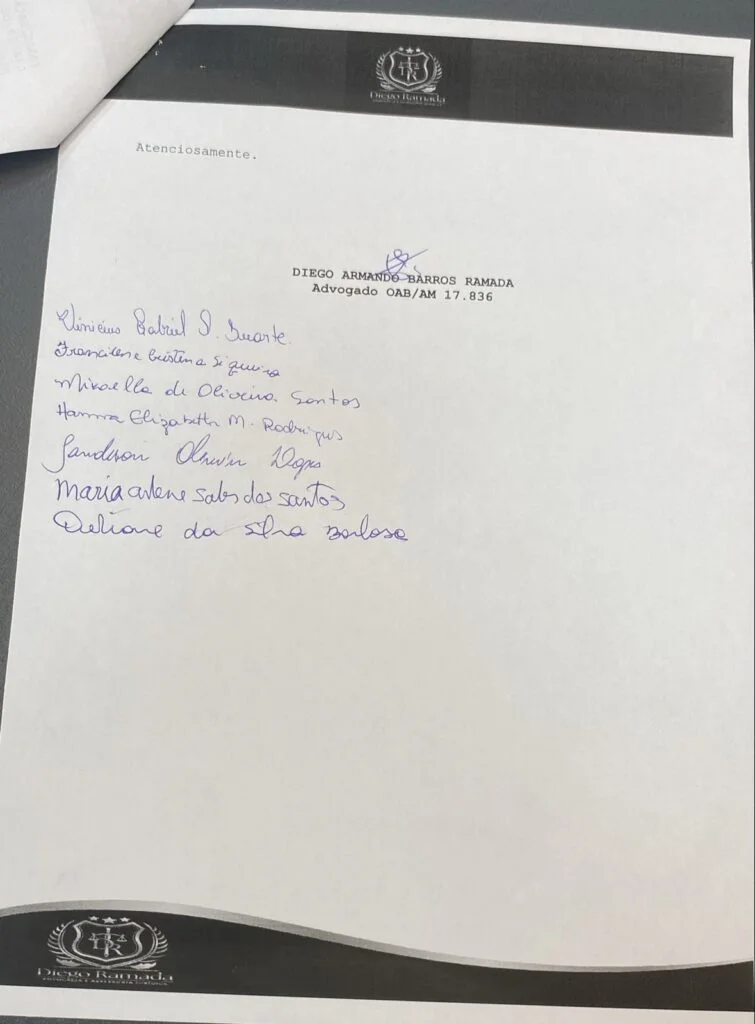 Diego Ramada
Atenciosamente.
DIEGO ARMANDO BARROS RAMADA
Advogado OAB/AM 17.836
Vinicius Gabriel D. Duarte.
Francilene Cristina Siqueira
Mikaella de Oliveira Santos
Hanna Elizabeth M. Rodrigues
Maria arlene Sales dos santos
da silva Barbosa
DR
Diego Ramada
ADVOCACIA E ASSESSORIA JURÍDICA